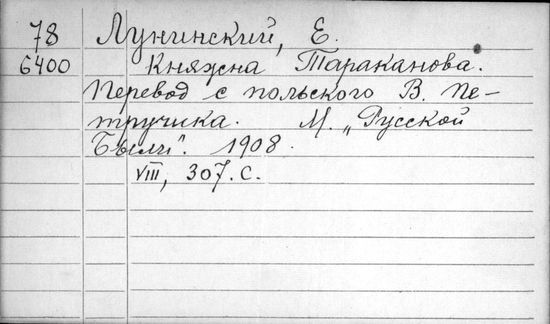 78 Лунинский, Е.
6400 Княжна Тараканова.
Перевод с польского В. Пе-
тручика. М. „Русской
Были". 1908.
VIII, 307. С.